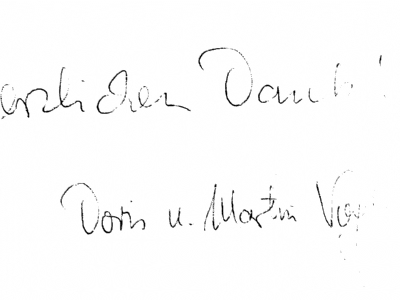 erzlichen Dank!
Doris u. Martin